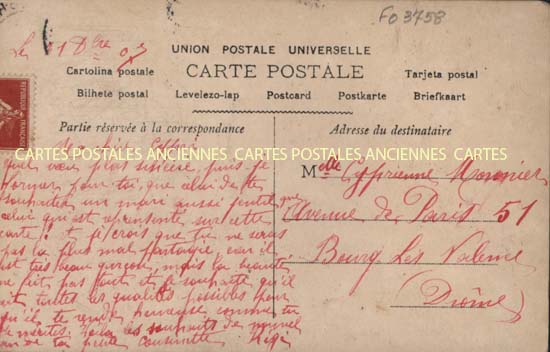 FO 3758
Le 31 Dbre 07
UNION POSTALE UNIVERSELLE
CARTE POSTALE
Cartolina postale
Tarjeta postal
Bilhete postal
Levelezo-lap
Postcard
Postkarte
Briefkaart
Partie réservée à la correspondance
Adresse du destinataire
CARTES POSTALES ANCIENNES CARTES POSTALES ANCIENNES CARTES
Ma
vœu plus sincère, puis-je
former pour toi, que celui de te
souhaiter un mari aussi gentil
celui qui est représenté sur cette
carte! je crois que tu ne seras
pas la plus mal partagée, car il
est très beau garçon, mais la beauté
ne fait pas tout, et je souhaite qu'il
ait toutes les qualités possibles pour
qu'il te rende heureuse comme tu
le mérites. Voilà les souhaits de nouvel
an de ta petite cousinette
Melle Cyprienne Monnier
Avenue de Paris 51
Bourg Les Valence
(Drôme)